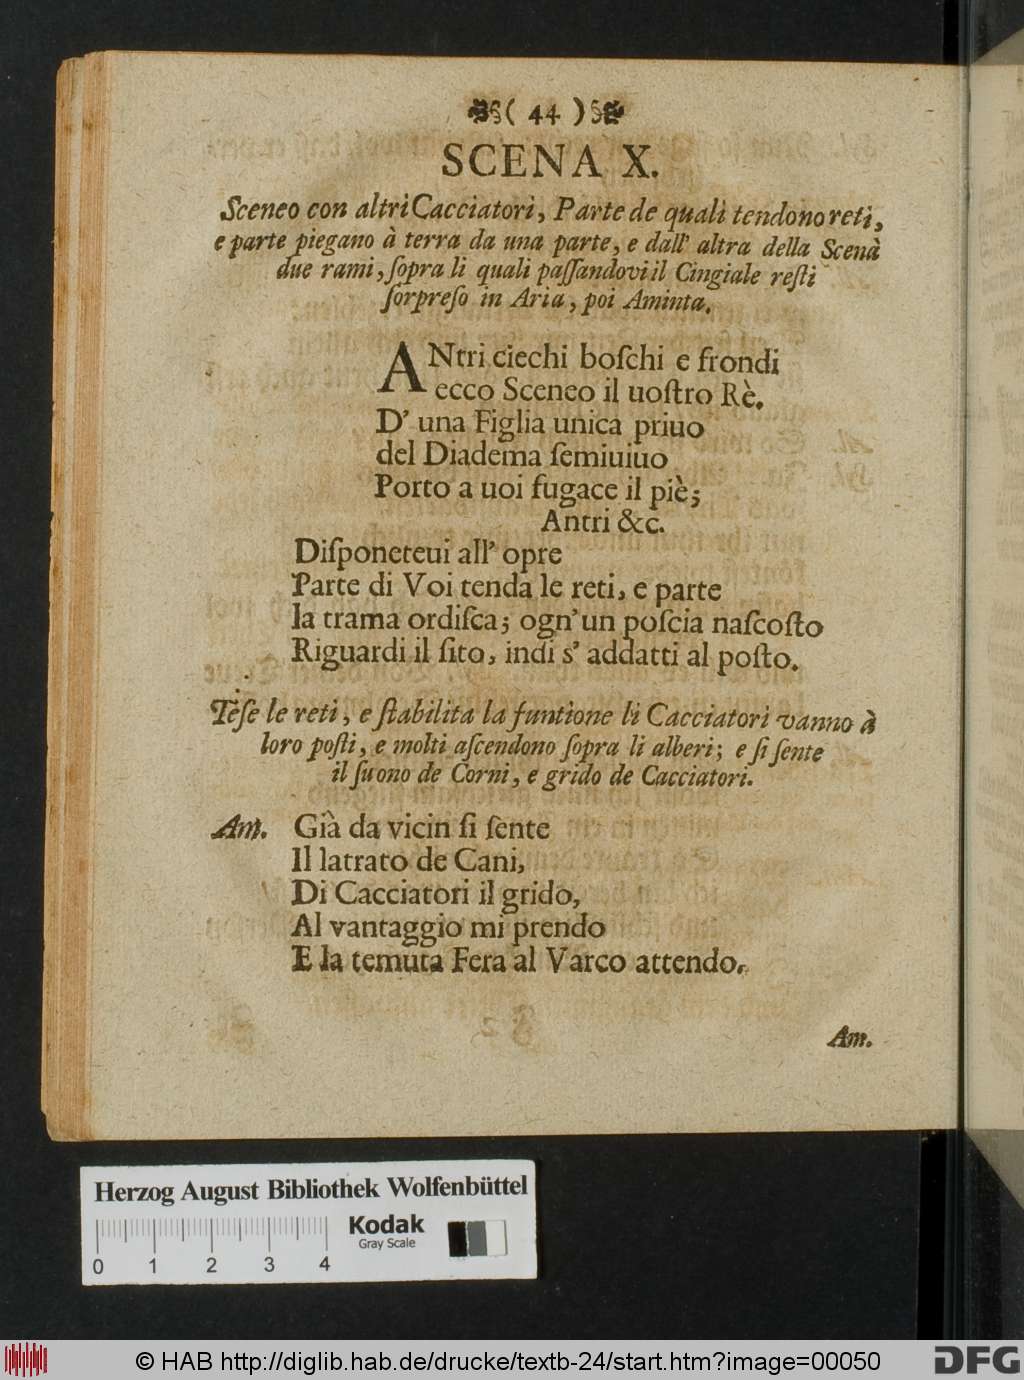 ( 44 )
SCENA X.
Sceneo con altri Cacciatori, Parte de quali tendono reti,
e parte piegano à terra da una parte, e dall' altra della Scenà
due rami, ſopra li quali paſſandovi il Cingiale reſti
ſorpreſo in Aria, poi Aminta.
ANtri ciechi boſchi e frondi
ecco Sceneo il uoſtro Rè.
D' una Figlia unica priuo
del Diadema ſemiuiuo
Porto a uoi fugace il piè;
Antri &c.
Diſponeteui all' opre
Parte di Voi tenda le reti, e parte
la trama ordiſca; ogn'un poſcia naſcoſto
Riguardi il ſito, indi s' addatti al poſto.
Teſe le reti, e ſtabilita la funtione li Cacciatori vanno à
loro poſti, e molti aſcendono ſopra li alberi; e ſi ſente
il ſuono de Corni, e grido de Cacciatori.
Am. Già da vicin ſi ſente
Il latrato de Cani,
Di Cacciatori il grido,
Al vantaggio mi prendo
E la temuta Fera al Varco attendo.
Am.
Herzog August Bibliothek Wolfenbüttel
Kodak
Gray Scale
0 1 2 3 4
© HAB http://diglib.hab.de/drucke/textb-24/start.htm?image=00050
DFG